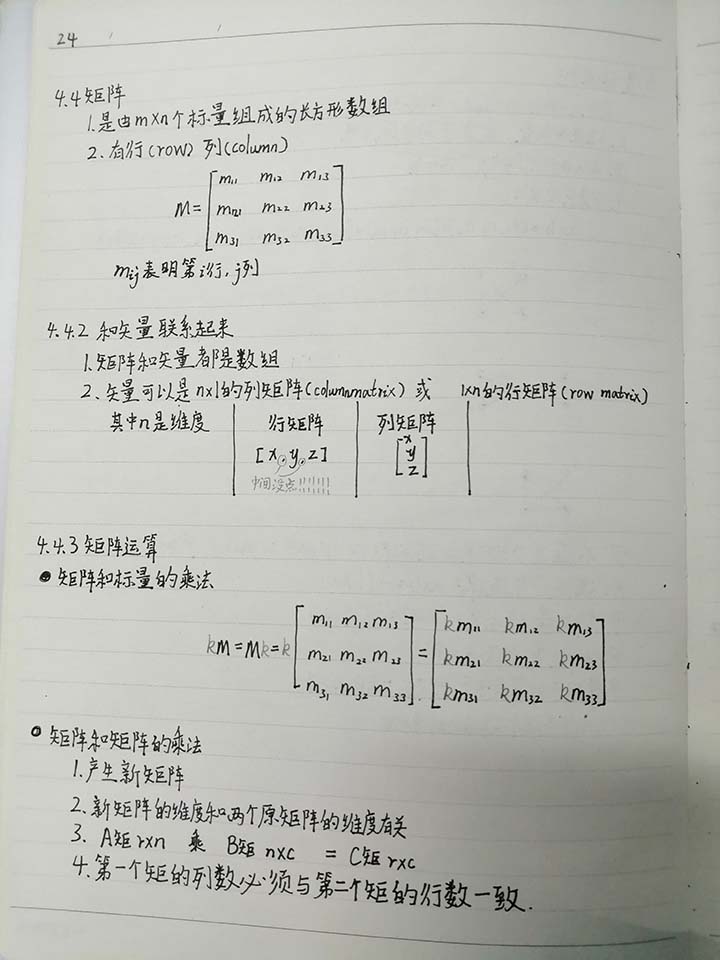 24
4.4 矩阵
1. 是由m×n个标量组成的长方形数组
2. 有行(row) 列(column)
M = [m₁₁ m₁₂ m₁₃
m₂₁ m₂₂ m₂₃
m₃₁ m₃₂ m₃₃]
mij表明第i行, j列
4.4.2 和矢量联系起来
1. 矩阵和矢量都是数组
2. 矢量可以是n×1的列矩阵(columnmatrix) 或 1×n的行矩阵(row matrix)
其中n是维度 行矩阵 列矩阵
[x, y, z] [x
y
z]
中间没点!!!!!!
4.4.3 矩阵运算
● 矩阵和标量的乘法
kM = Mk = k [m₁₁ m₁₂ m₁₃ = [km₁₁ km₁₂ km₁₃
m₂₁ m₂₂ m₂₃ km₂₁ km₂₂ km₂₃
m₃₁ m₃₂ m₃₃] km₃₁ km₃₂ km₃₃]
● 矩阵和矩阵的乘法
1. 产生新矩阵
2. 新矩阵的维度和两个原矩阵的维度有关
3. A矩 r×n 乘 B矩 n×c = C矩 r×c
4. 第一个矩的列数必须与第二个矩的行数一致.